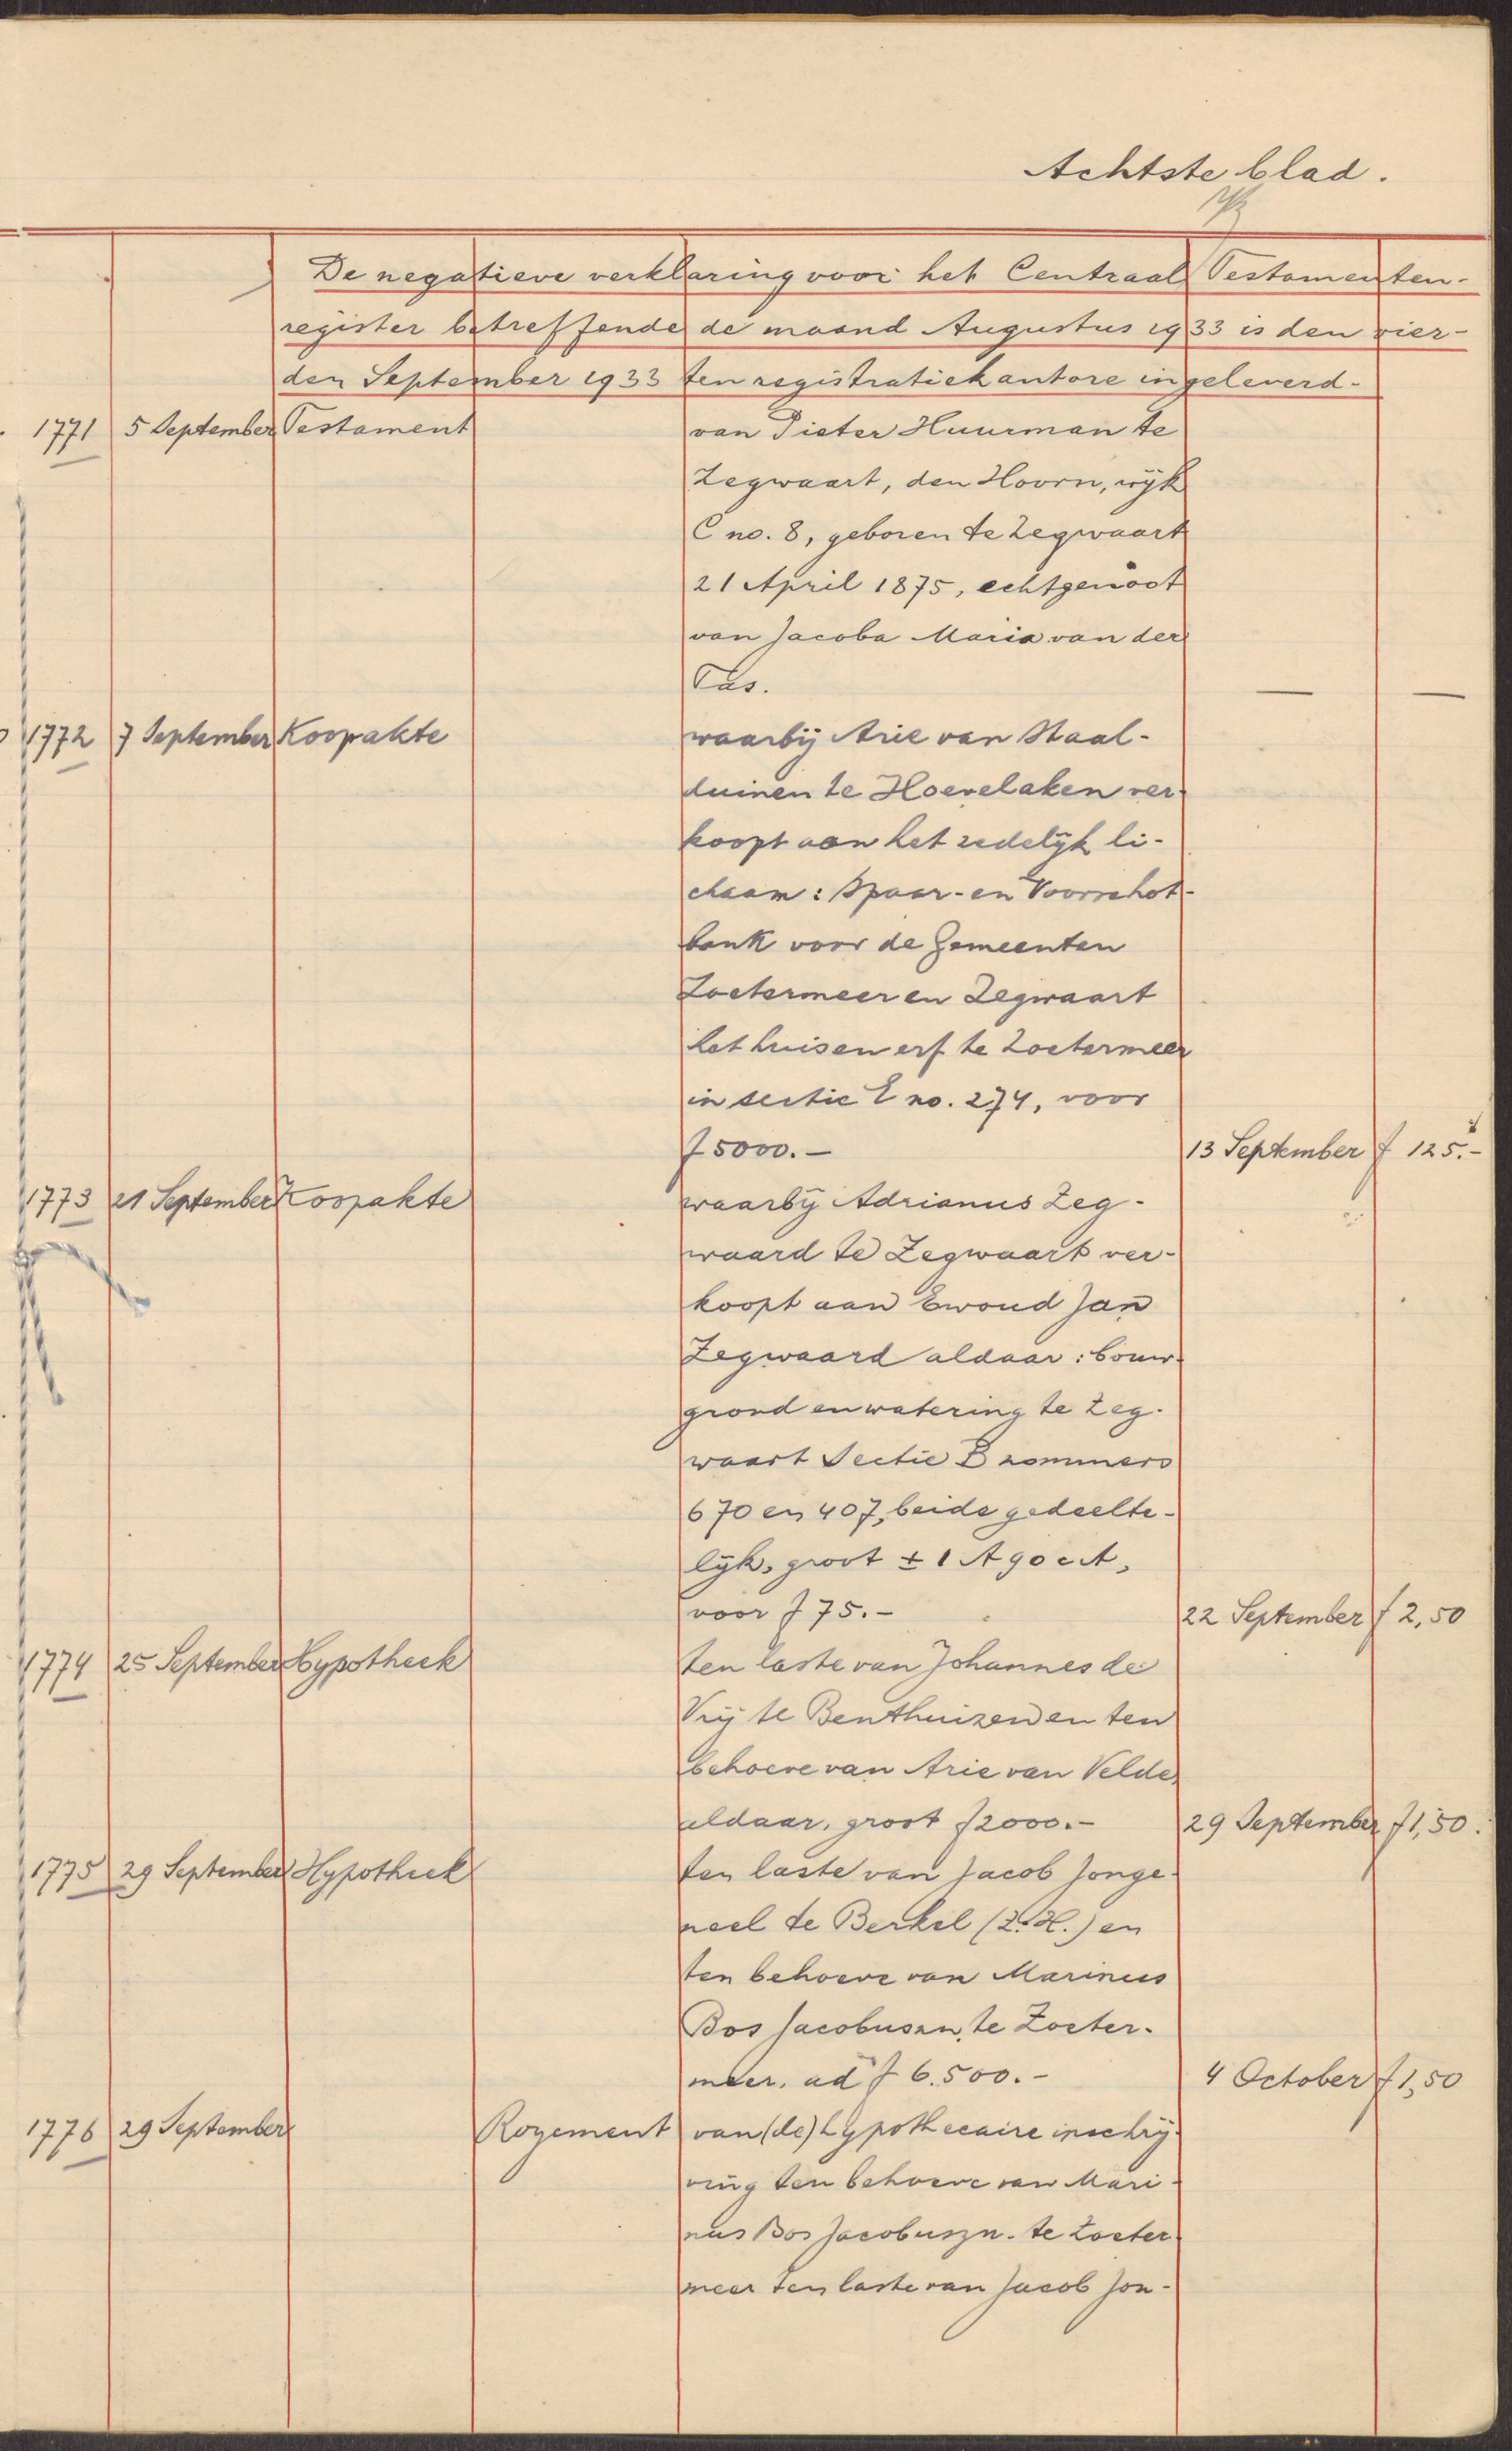 Achtste blad.
De negatieve verklaring voor het Centraal Testamenten-
register betreffende de maand Augustus 1933 is den vier-
den September 1933 ten registratiekantore ingeleverd-
1771 5 September Testament van Pieter Huurman te
Zegwaart, den Hoorn, wijk
C no. 8, geboren te Zegwaart
21 April 1875, echtgenoot
van Jacoba Maria van der
Tas. — —
1772 7 September Koopakte waarbij Arie van Staal-
duinen te Hoevelaken ver-
koopt aan het zedelijk li-
chaam: Spaar- en Voorschot-
bank voor de Gemeenten
Zoetermeer en Zegwaart
het huis en erf te Zoetermeer
in sectie E no. 274, voor
f 5000.- 13 September f 125.-
1773 21 September Koopakte waarbij Adrianus Zeg-
waard te Zegwaart ver-
koopt aan Ewoud Jan
Zegwaard aldaar: bouw-
grond en watering te Zeg-
waart Sectie B nommers
670 en 407, beide gedeelte-
lijk, groot ± 1 A 90 cA,
voor f 75.- 22 September f 2,50
1774 25 September Hypotheek ten laste van Johannes de
Vrij te Benthuizen en ten
behoeve van Arie van Velde
aldaar, groot f2000.- 29 September f1,50.
1775 29 September Hypotheek ten laste van Jacob Jonge-
neel te Berkel (Z.H.) en
ten behoeve van Marinus
Bos Jacobuszn. te Zoeter-
meer, ad f 6.500.- 4 October f1,50
1776 29 September Royement van (de) hypothecaire inschrij-
ving ten behoeve van Mari-
nus Bos Jacobuszn. te Zoeter-
meer ten laste van Jacob Jon-